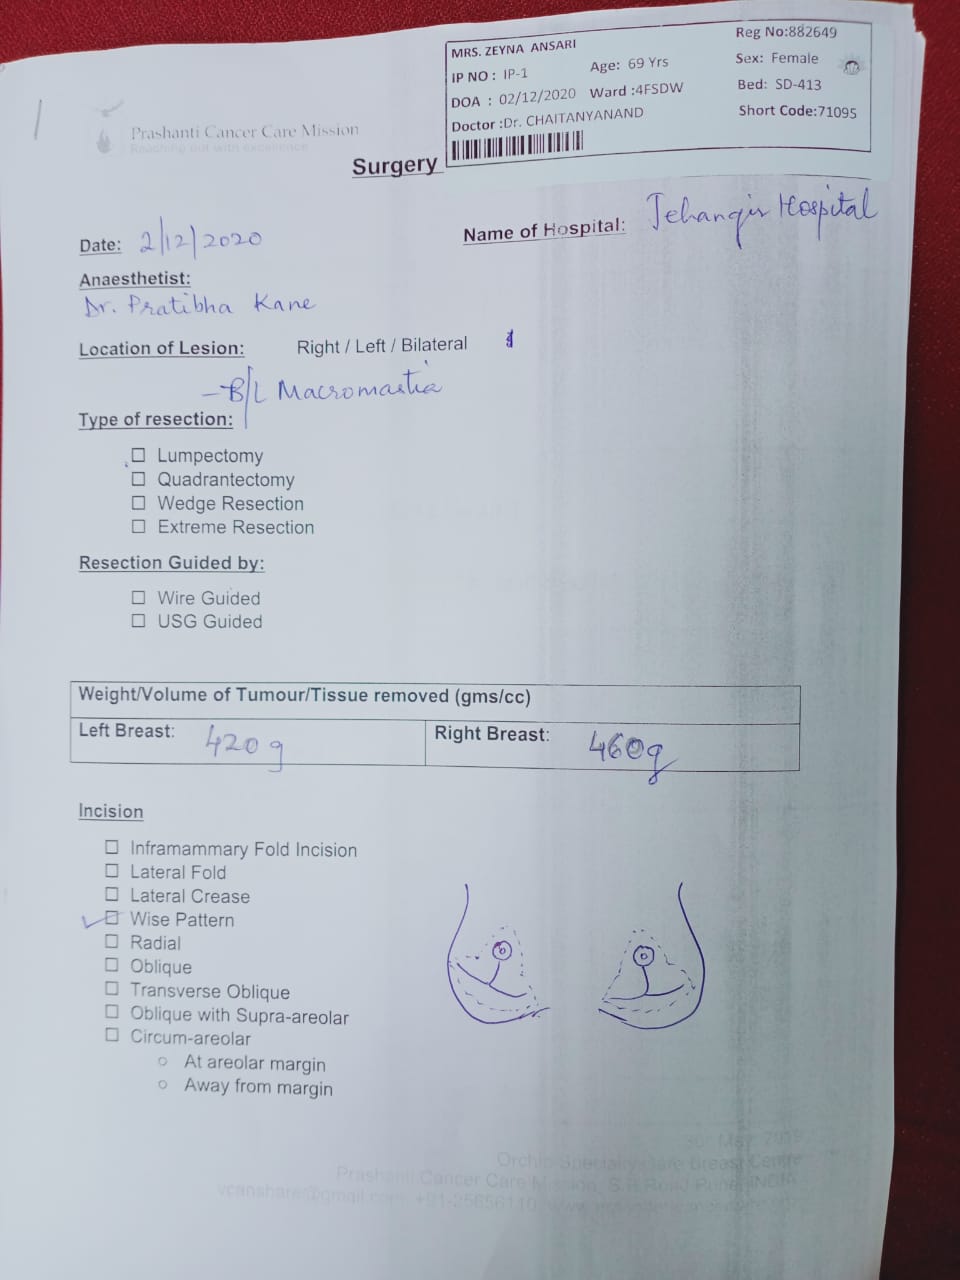 MRS. ZEYNA ANSARI
Reg No:882649
IP NO : IP-1 Age: 69 Yrs Sex: Female
DOA : 02/12/2020 Ward :4FSDW Bed: SD-413
Doctor :Dr. CHAITANYANAND Short Code:71095
Prashanti Cancer Care Mission
Reaching out with excellence
Surgery
Date: 2/12/2020 Name of Hospital: Jehangir Hospital
Anaesthetist:
Dr. Pratibha Kane
Location of Lesion: Right / Left / Bilateral
- B/L Macromastia
Type of resection:
☐ Lumpectomy
☐ Quadrantectomy
☐ Wedge Resection
☐ Extreme Resection
Resection Guided by:
☐ Wire Guided
☐ USG Guided
Weight/Volume of Tumour/Tissue removed (gms/cc)
Left Breast: 420g Right Breast: 460g
Incision
☐ Inframammary Fold Incision
☐ Lateral Fold
☐ Lateral Crease
✓☐ Wise Pattern
☐ Radial
☐ Oblique
☐ Transverse Oblique
☐ Oblique with Supra-areolar
☐ Circum-areolar
○ At areolar margin
○ Away from margin
Prashanti Cancer Care Mission,